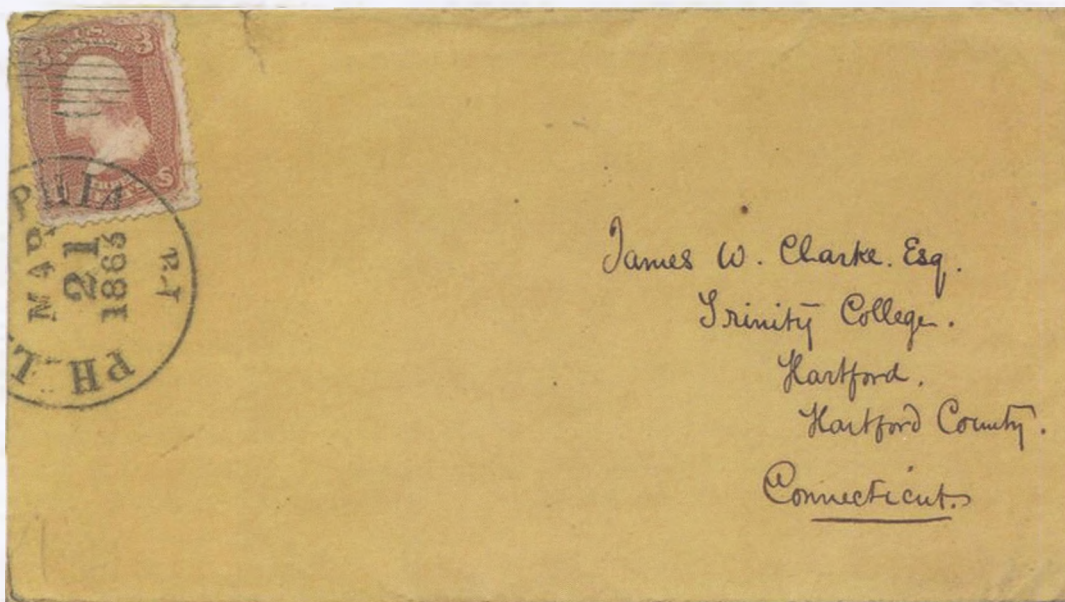 3 U.S. 3
POSTAGE
PHIL
PA
MAR
21
1863
James W. Clarke. Esq.
Trinity College.
Hartford.
Hartford County.
Connecticut.